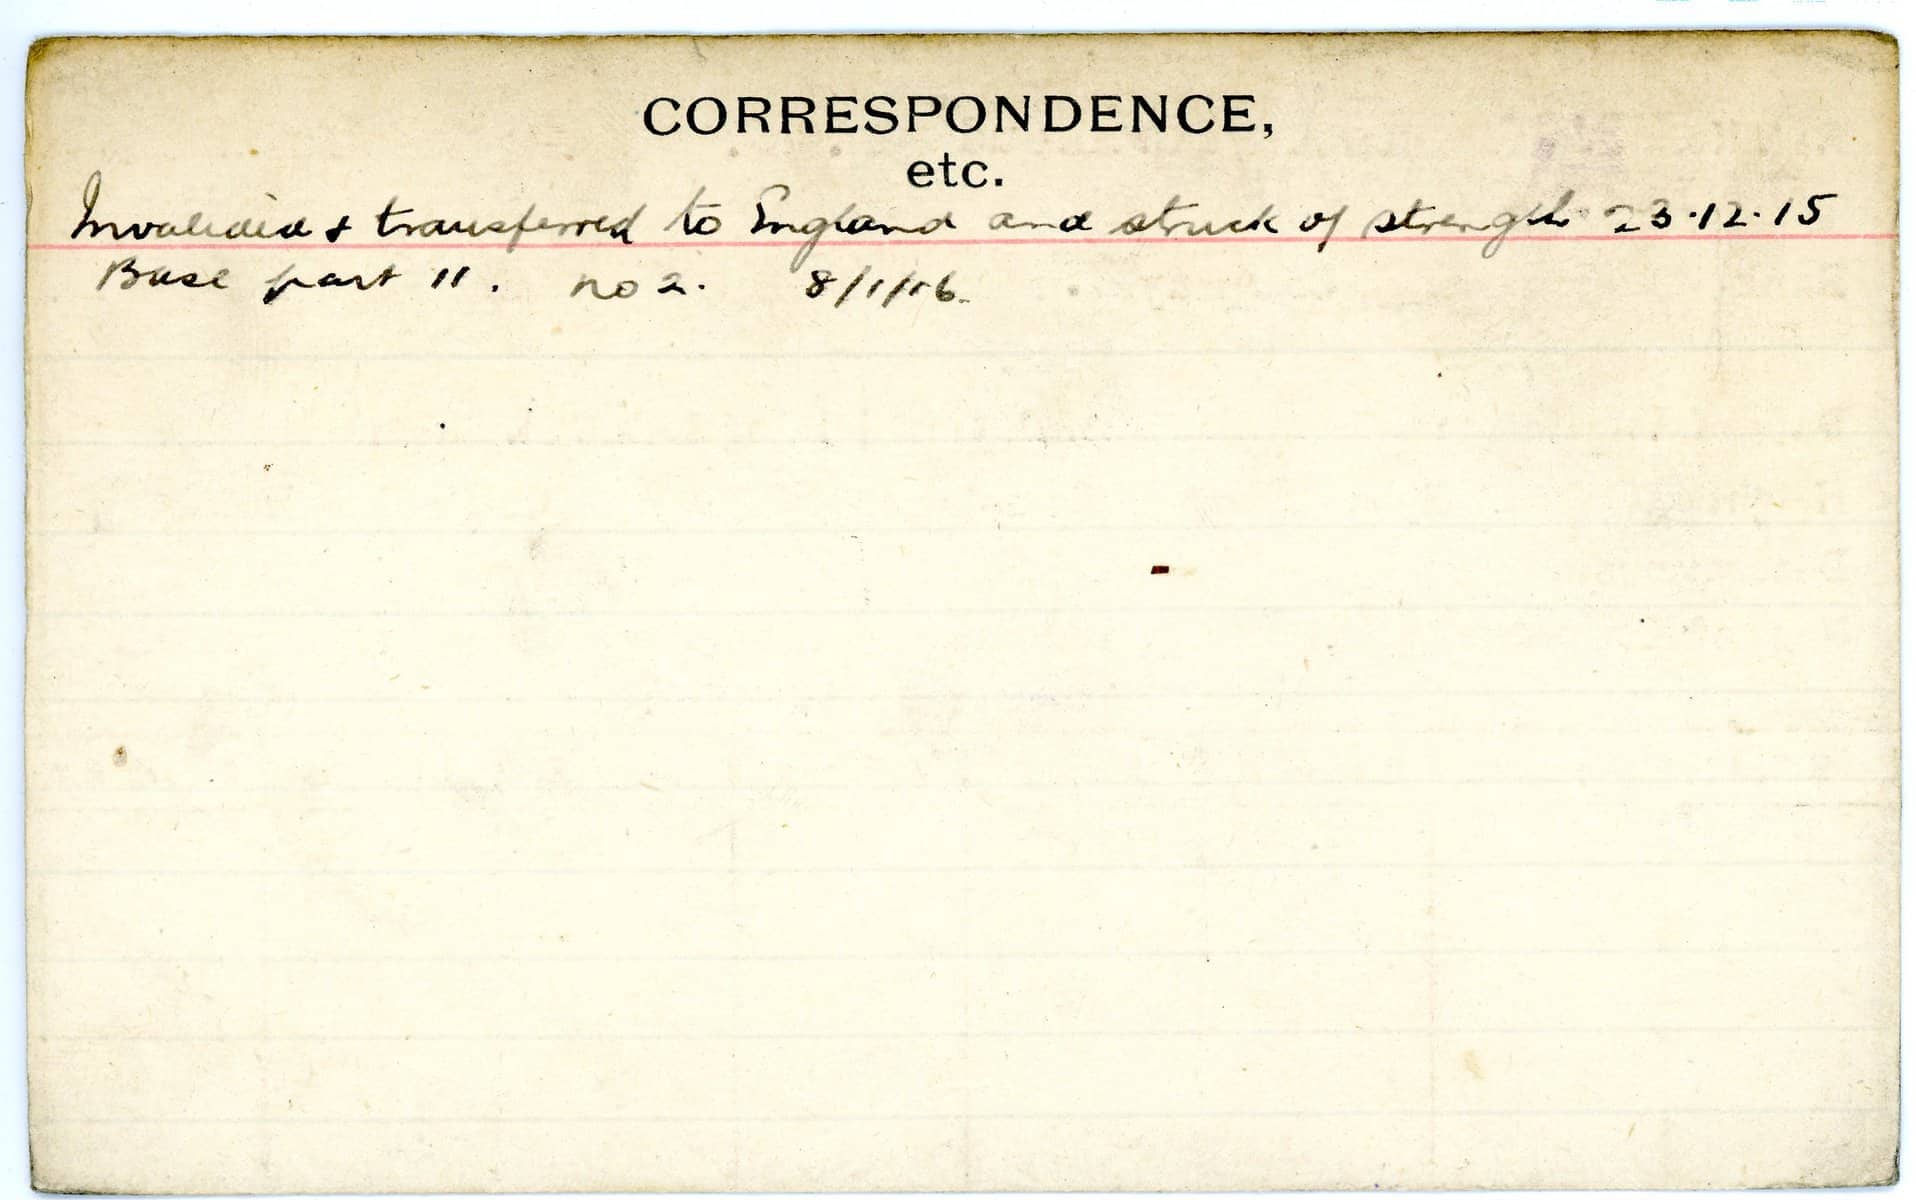 CORRESPONDENCE,
etc.
Invalided & transferred to England and struck of strength 23.12.15
Base part 11. no 2. 8/1/16.